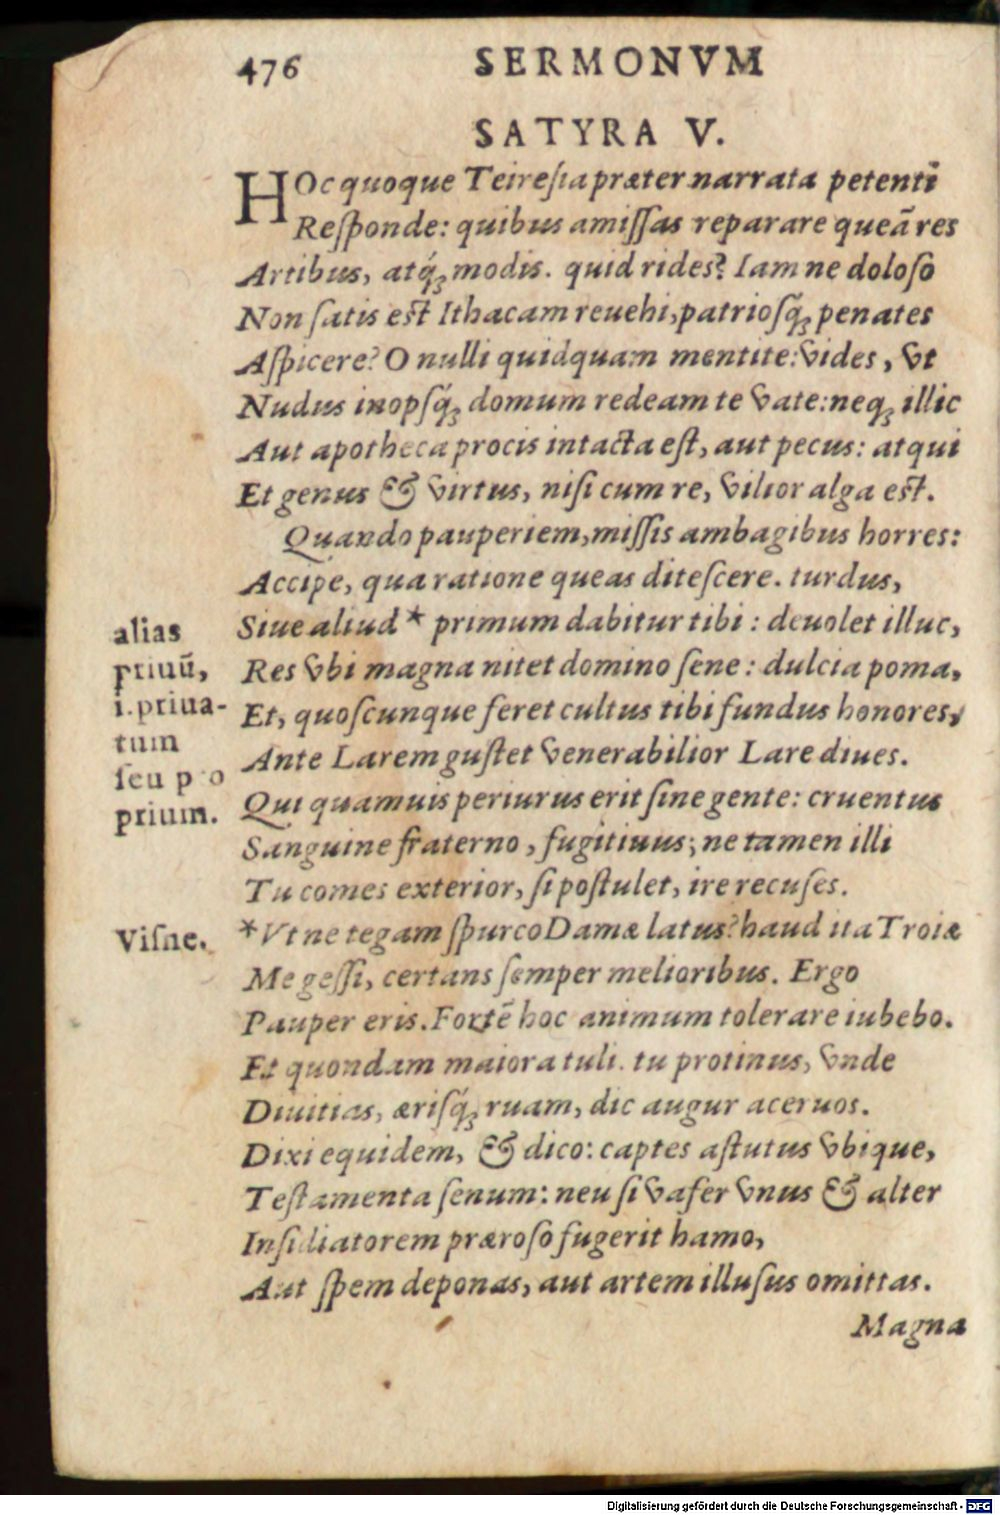 476 SERMONVM
SATYRA V.
HOc quoque Teiresia præter narrata petenti
Responde: quibus amissas reparare queã res
Artibus, atq́; modis. quid rides? Iam ne doloso
Non satis est Ithacam reuehi, patriosq́; penates
Aspicere? O nulli quidquam mentite: vides, vt
Nudus inopsq́; domum redeam te vate: neq; illic
Aut apotheca procis intacta est, aut pecus: atqui
Et genus & virtus, nisi cum re, vilior alga est.
Quando pauperiem, missis ambagibus horres:
Accipe, qua ratione queas ditescere. turdus,
Siue aliud * primum dabitur tibi: deuolet illuc,
Res vbi magna nitet domino sene: dulcia poma,
Et, quoscunque feret cultus tibi fundus honores,
Ante Larem gustet venerabilior Lare diues.
Qui quamuis periurus erit sine gente: cruentus
Sanguine fraterno, fugitiuus; ne tamen illi
Tu comes exterior, si postulet, ire recuses.
*Vt ne tegam spurco Damæ latus? haud ita Troiæ
Me gessi, certans semper melioribus. Ergo
Pauper eris. Fortẽ hoc animum tolerare iubebo.
Et quondam maiora tuli. tu protinus, vnde
Diuitias, ærisq́; ruam, dic augur aceruos.
Dixi equidem, & dico: captes astutus vbique,
Testamenta senum: neu si vafer vnus & alter
Insidiatorem præroso fugerit hamo,
Aut spem deponas, aut artem illusus omittas.
Magna
alias
priuũ,
i. priua-
tum
seu pro
prium.
Visne.
Digitalisierung gefördert durch die Deutsche Forschungsgemeinschaft - DFG